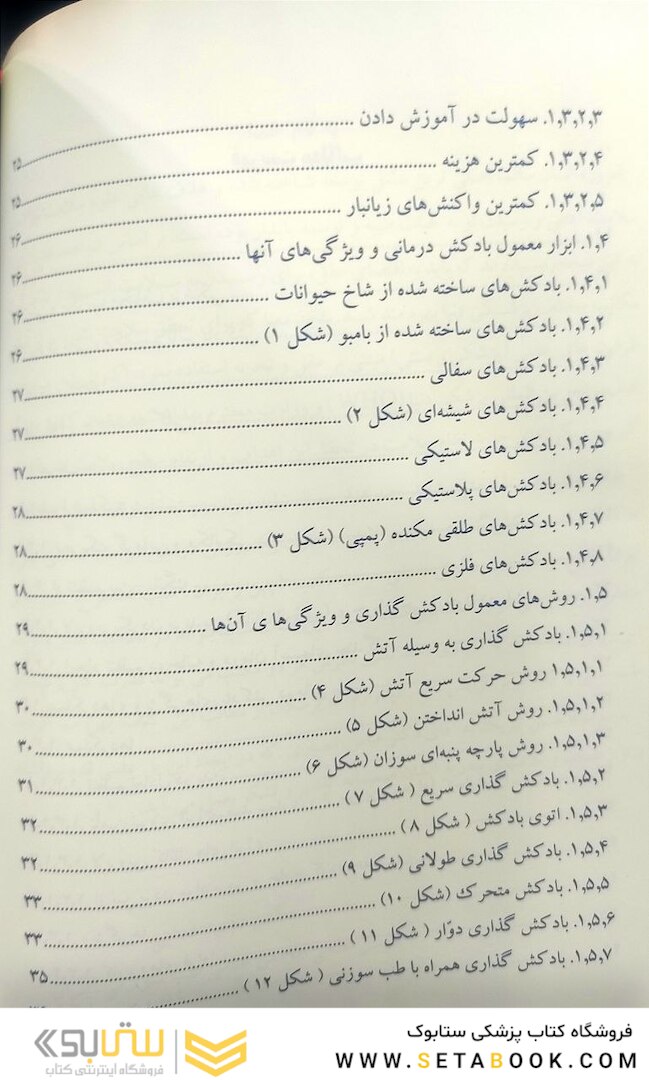 ۱,۳,۲,۳. سهولت در آموزش دادن ........ ۲۵
۱,۳,۲,۴. کمترین هزینه ........ ۲۵
۱,۳,۲,۵. کمترین واکنش‌های زیانبار ........ ۲۶
۱,۴. ابزار معمول بادکش درمانی و ویژگی‌های آنها ........ ۲۶
۱,۴,۱. بادکش‌های ساخته شده از شاخ حیوانات ........ ۲۶
۱,۴,۲. بادکش‌های ساخته شده از بامبو (شکل ۱) ........ ۲۶
۱,۴,۳. بادکش‌های سفالی ........ ۲۷
۱,۴,۴. بادکش‌های شیشه‌ای (شکل ۲) ........ ۲۷
۱,۴,۵. بادکش‌های لاستیکی ........ ۲۷
۱,۴,۶. بادکش‌های پلاستیکی ........ ۲۸
۱,۴,۷. بادکش‌های طلقی مکنده (پمپی) (شکل ۳) ........ ۲۸
۱,۴,۸. بادکش‌های فلزی ........ ۲۸
۱,۵. روش‌های معمول بادکش گذاری و ویژگی‌ها ی آن‌ها ........ ۲۹
۱,۵,۱. بادکش گذاری به وسیله آتش ........ ۲۹
۱,۵,۱,۱ روش حرکت سریع آتش (شکل ۴) ........ ۳۰
۱,۵,۱,۲. روش آتش انداختن (شکل ۵) ........ ۳۰
۱,۵,۱,۳. روش پارچه پنبه‌ای سوزان (شکل ۶) ........ ۳۱
۱,۵,۲. بادکش گذاری سریع ( شکل ۷) ........ ۳۲
۱,۵,۳. اتوی بادکش ( شکل ۸) ........ ۳۲
۱,۵,۴. بادکش گذاری طولانی (شکل ۹) ........ ۳۳
۱,۵,۵. بادکش متحرک (شکل ۱۰) ........ ۳۳
۱,۵,۶. بادکش گذاری دوّار ( شکل ۱۱) ........ ۳۵
۱,۵,۷. بادکش گذاری همراه با طب سوزنی ( شکل ۱۲) ........
فروشگاه کتاب پزشکی ستابوک
WWW.SETABOOK.COM
ستابوک
فروشگاه اینترنتی کتاب